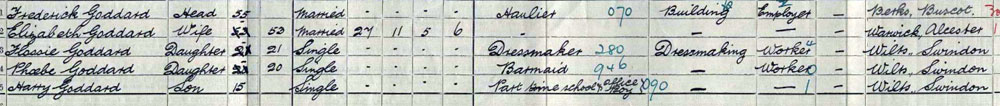 1 Frederick Goddard Head 55 Married - - - - Haulier 070 Building Employer - Berks, Buscot. 30
2 Elizabeth Goddard Wife 53 Married 27 11 5 6 - - - Warwick, Alcester 1
Flossie Goddard Daughter 21 Single - - - - Dressmaker 280 Dressmaking Worker - Wilts, Swindon
4 Phoebe Goddard Daughter 20 Single - - - - Barmaid 946 - Worker - Wilts, Swindon
5 Harry Goddard Son 15 Single - - - - Part time school & office Boy 090 - - - Wilts, Swindon